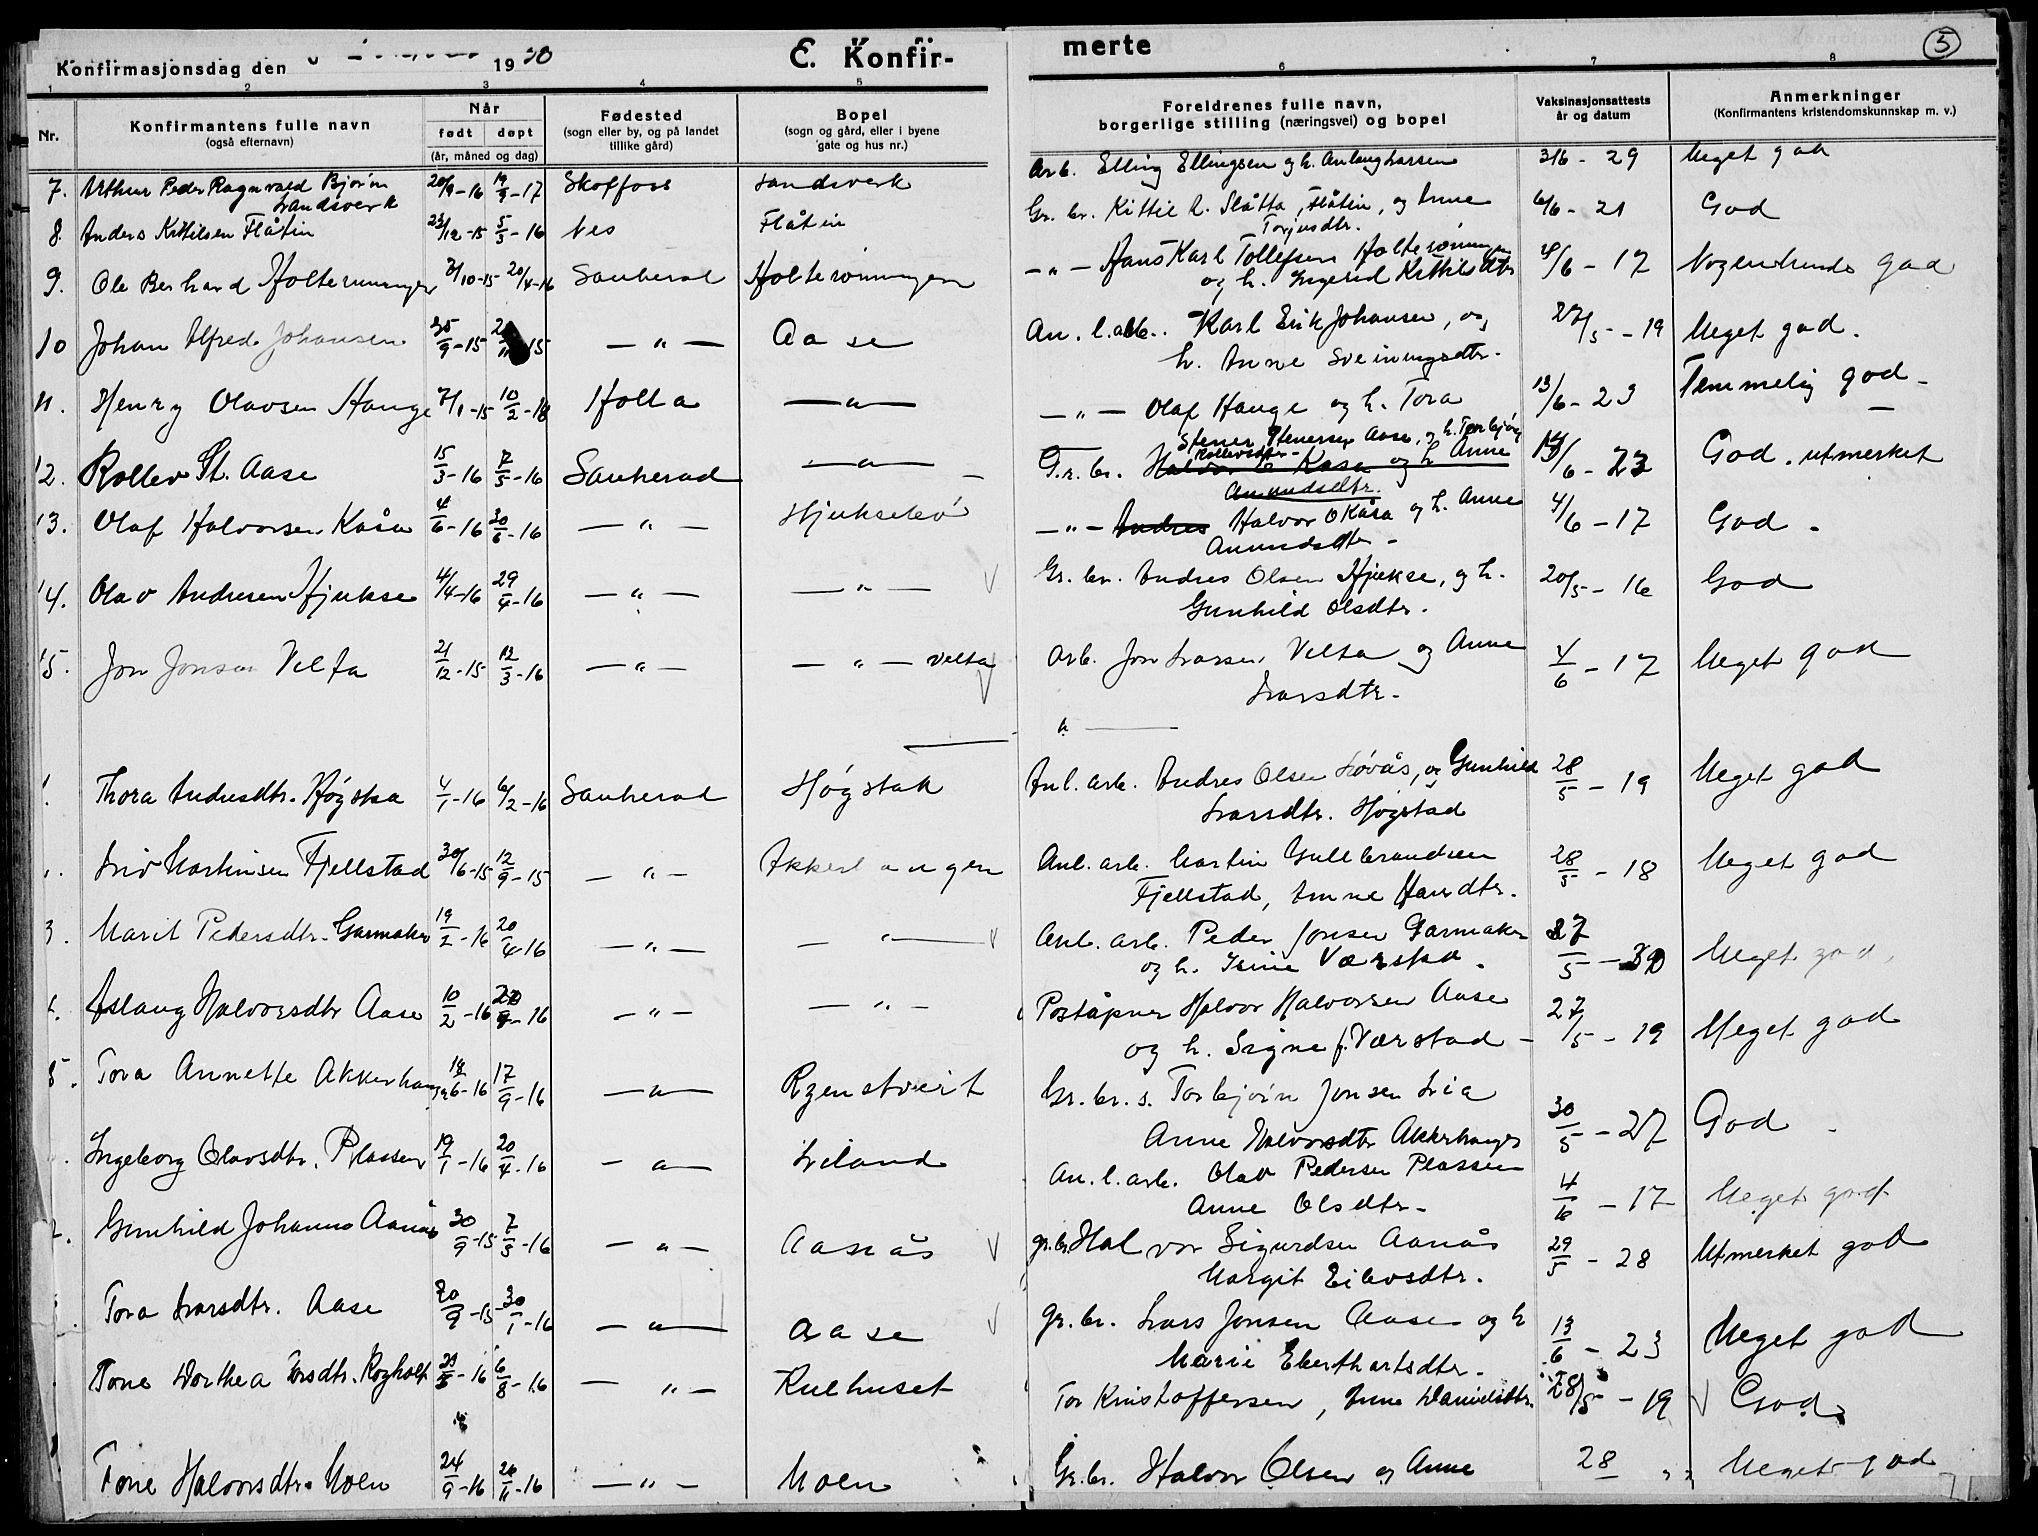 Konfirmasjonsdag den 19 30 E. Konfir- merte 5
1 2 3 4 5 6 7 8
Nr. Konfirmantens fulle navn (også efternavn)
Når født døpt (år, måned og dag)
Fødested (sogn eller by, og på landet tillike gård)
Bopel (sogn og gård, eller i byene gate og hus nr.)
Foreldrenes fulle navn, borgerlige stilling (næringsvei) og bopel
Vaksinasjonsattests år og datum
Anmerkninger (Konfirmantens kristendomskunnskap m. v.)
7. Arthur Peder Ragnvald Bjørn Landsverk 20/9-16 19/9-17 Skotfoss Landsverk Arb. Elling Ellingsen og h. Anlaug Larsen 3/6 - 29 Meget god
8. Anders Kittilsen Flåtin 23/12-15 5/3-16 Nes Flåtin Gr. br. Kittil A. Slåtta, Flåtin, og Anne Torjusdtr. 6/6 - 21 God
9. Ole Berhard Holterønningen 7/10-15 20/4-16 Sauherad Holterønningen -"- Hans Karl Tollefsen Holterønningen og h. Ingerid Kittilsdtr 4/6 - 17 Nogenlunde god
10 Johan Alfred Johansen 25/9-15 15 -"- Aase An. l. arb. Karl Erik Johansen, og h. Anne Sveinungsdtr. 27/5 - 19 Meget god.
11. Henry Olavsen Hauge 7/1-15 10/2-18 Holla -"- -"- Olaf Hauge og h. Tora 13/6 - 23 Temmelig god -
12. Rollev St. Aase 15/3-16 7/5-16 Sauherad -"- Gr. br. Stener Stenersen Aase, og h. Torbjørg Rollevsdtr. Halvor O Kasa og h Anne Anundsdtr. 14/6 - 23 God. utmerket
13. Olaf Halvorsen Kåsa 4/6-16 30/6-16 -"- Hjuksebø -"- Andres Halvor O Kåsa og h. Anne Anundsdtr - 4/6 - 17 God -
14. Olav Andresen Hjukse 4/4-16 29/4-16 -"- -"- Gr. br. Andres Olsen Hjukse, og h. Gunhild Olsdtr. 20/5 - 16 God
15. Jon Jonsen Velta 21/12-15 12/3-16 -"- -"- Velta Arb. Jon Larsen Velta og Anne Larsdtr. 4/6 - 17 Meget god
1. Thora Andresdtr. Høgstad 4/1-16 6/2-16 Sauherad Høgstad Anl. arb. Andres Olsen Løvås, og Gunhild Larsdtr. Høgstad 28/5 - 19 Meget god
Liv Martinsen Fjellstad 30/6-15 12/9-15 -"- Akkerhaugen Anl. arb. Martin Gulbrandsen Fjellstad, Anne Hansdtr. 28/5 - 18 Meget god
3. Marit Pedersdtr. Garmaker 19/2-16 20/4-16 -"- -"- Anl. arb. Peder Jonsen Garmaker og h. Værstad. 27/5 - Meget god.
4. Aslaug Halvorsdtr Aase 10/2-16 -16 -"- -"- Poståpner Halvor Halvorsen Aase og h. Signe f. Værstad - 27/5 - 19 Meget god
5. Tora Annette Akkerhaugen 18/6-16 17/9-16 -"- Ryenstveit Gr. br. s. Torbjørn Jonsen Lia Anne Halvorsdtr Akkerhaugen 30/5 - 27 God -
Ingeborg Olavsdtr. Plassen 19/1-16 20/4-16 -"- Liland An. l. arb. Olav Pedersen Plassen Anne Olsdtr. 4/6 - 17 Meget god
Gunhild Johanne Aanås 30/9-15 7/5-16 -"- Aasnås gr. br Halvor Sigurdsen Aanås Margit Eilevsdtr. 29/5 - 28 Utmerket god
Tora Larsdtr. Aase 20/9-15 30/1-16 -"- Aase gr. br. Lars Jonsen Aase og h Marie Eberthartsdtr. 13/6 - 23 Meget god
Tone Dorthea Torsdtr. Rogholt -16 6/8-16 -"- Kulhuset Tor Kristoffersen, Anne Danielsdtr. 28/5 - 19 God
Tone Halvorsdtr. Moen 24/9-16 26/11-16 -"- Moen Gr. br. Halvor Olsen og Anne 28 " Meget god